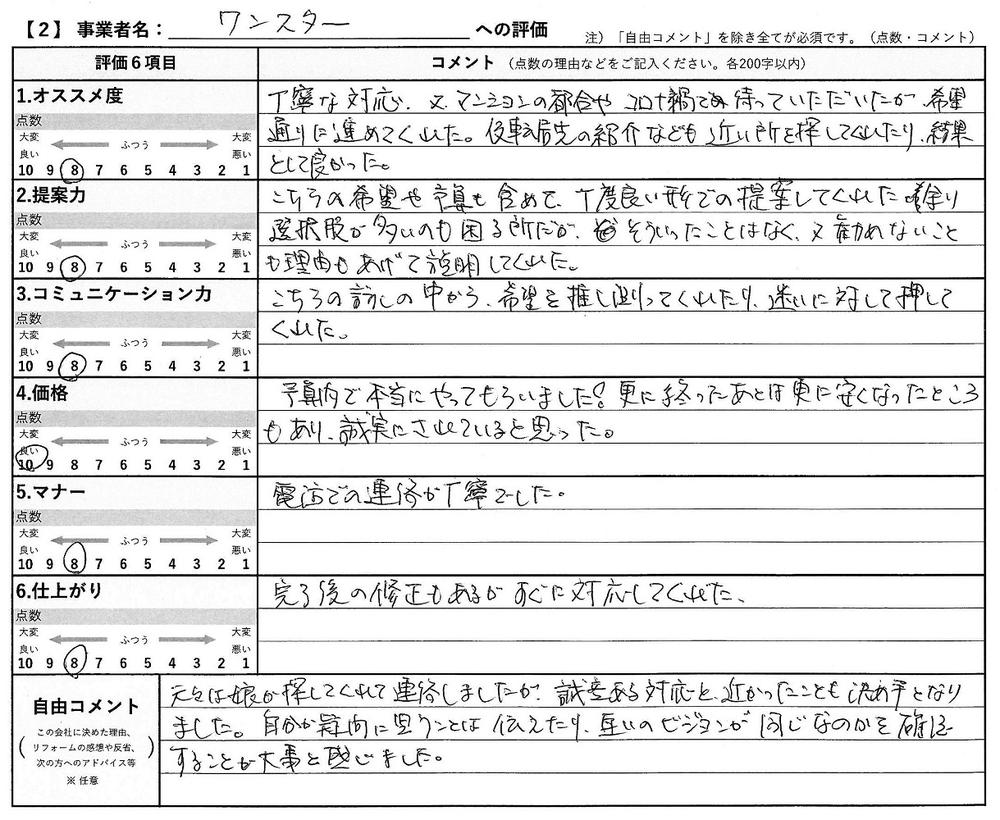 【２】事業者名： ワンスター への評価
注）「自由コメント」を除き全てが必須です。（点数・コメント）
評価６項目
コメント （点数の理由などをご記入ください。各200字以内）
1.オススメ度
点数
大変 ふつう 大変
良い 悪い
10 9 8 7 6 5 4 3 2 1
丁寧な対応、又、マンションの都合や コロナ禍で 待っていただいたが、希望
通りに進めてくれた。仮転居先の紹介なども 近い所を探してくれたり、結果
として良かった。
2.提案力
点数
大変 ふつう 大変
良い 悪い
10 9 8 7 6 5 4 3 2 1
こちらの希望や予算も含めて、丁度良い形での提案してくれた 余り
選択股が多いのも困る所だが、そういったことはなく、又 勧めれないこと
も理由もあげて説明してくれた。
3.コミュニケーション力
点数
大変 ふつう 大変
良い 悪い
10 9 8 7 6 5 4 3 2 1
こちらの話しの中から、希望を推し測ってくれたり、迷いに対して押して
くれた。
4.価格
点数
大変 ふつう 大変
良い 悪い
10 9 8 7 6 5 4 3 2 1
予算内で本当にやってもらいました！更に終ったあとは更に安くなったところ
もあり、誠実にされていると思った。
5.マナー
点数
大変 ふつう 大変
良い 悪い
10 9 8 7 6 5 4 3 2 1
電話での連絡が丁寧でした。
6.仕上がり
点数
大変 ふつう 大変
良い 悪い
10 9 8 7 6 5 4 3 2 1
完了後の修正もあるが すぐに対応してくれた、
自由コメント
この会社に決めた理由、
リフォームの感想や反省、
次の方へのアドバイス等
※ 任意
元々は娘が探してくれて連絡しましたが、誠意ある対応と、近かったことも決め手となり
ました。自分が疑問に思うことは 伝えたり、互いのビジョンが同じなのかを確認
することが大事と感じました。